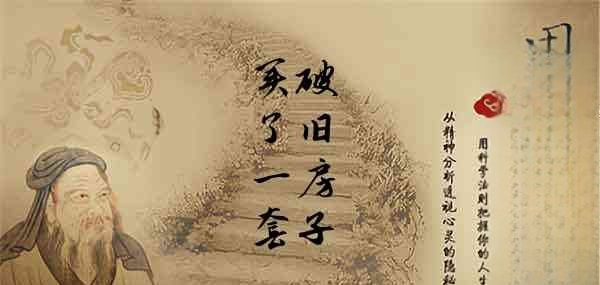 买了一套
破旧房子
从精神分析透视心灵的隐秘
用科学法则把握你的人生